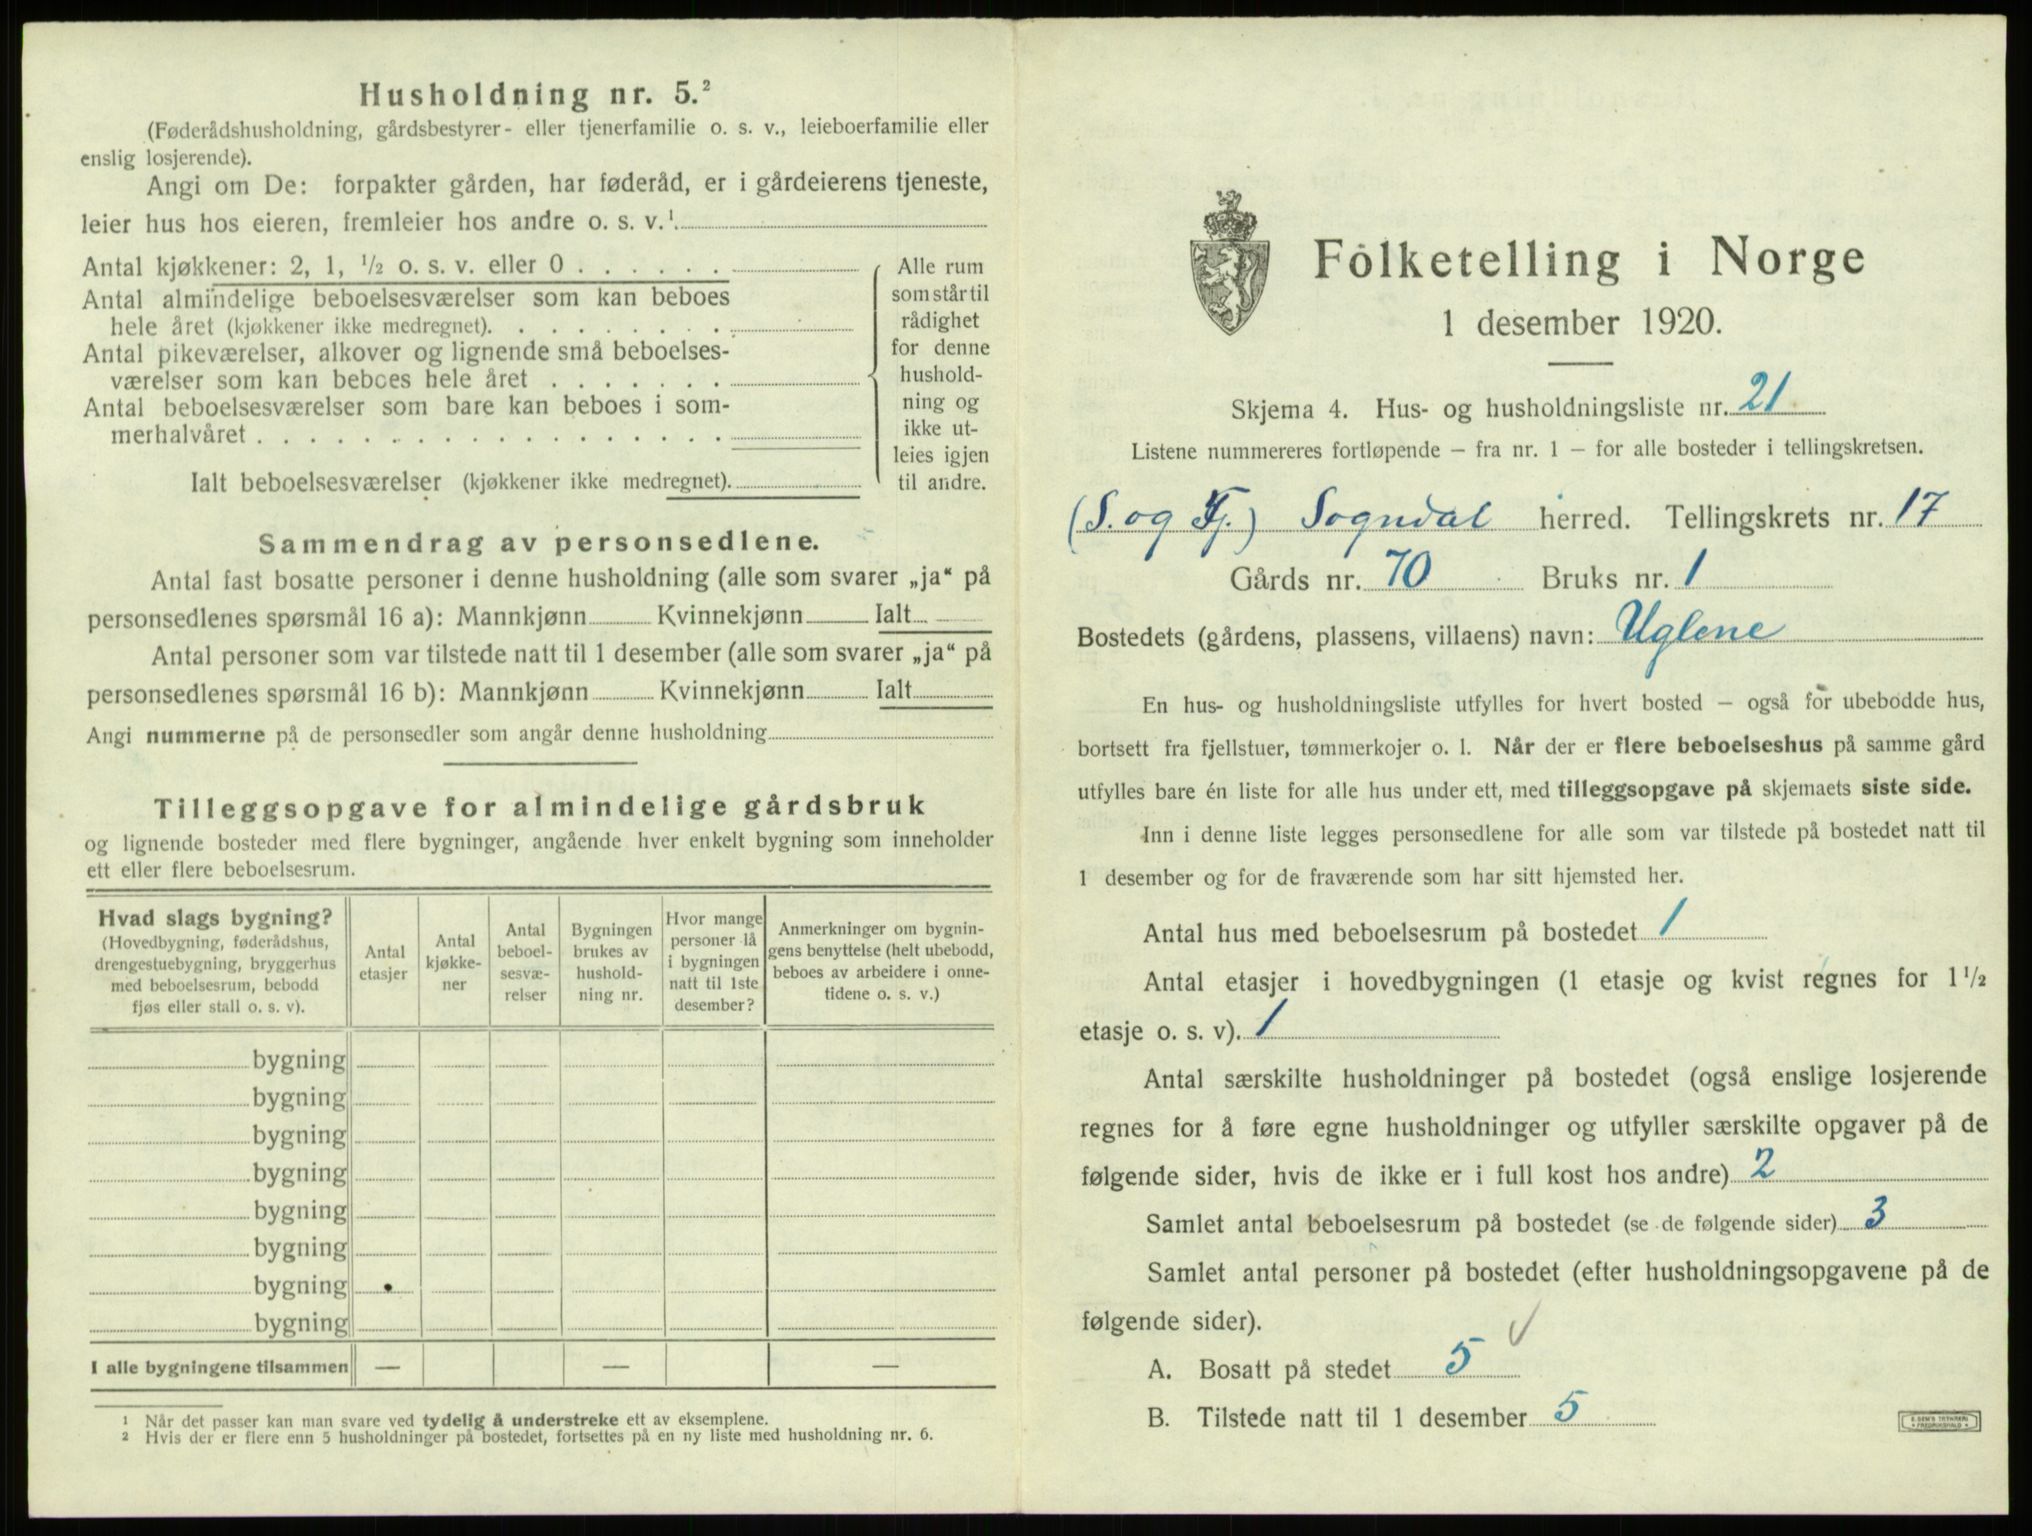 Husholdning nr. 5.²
(Føderådshusholdning, gårdsbestyrer- eller tjenerfamilie o. s. v., leieboerfamilie eller
enslig losjerende).
Angi om De: forpakter gården, har føderåd, er i gårdeierens tjeneste,
leier hus hos eieren, fremleier hos andre o. s. v.¹
Antal kjøkkener: 2, 1, ½ o. s. v. eller 0 . . . . . .
Antal almindelige beboelsesværelser som kan beboes
hele året (kjøkkener ikke medregnet). . . . . . . . .
Antal pikeværelser, alkover og lignende små beboelses-
værelser som kan beboes hele året . . . . . . .
Antal beboelsesværelser som bare kan beboes i som-
merhalvåret . . . . . . . . . . . . . . . . . .
Ialt beboelsesværelser (kjøkkener ikke medregnet).
Alle rum
som står til
rådighet
for denne
hushold-
ning og
ikke ut-
leies igjen
til andre.
Sammendrag av personsedlene.
Antal fast bosatte personer i denne husholdning (alle som svarer „ja“ på
personsedlenes spørsmål 16 a): Mannkjønn Kvinnekjønn Ialt
Antal personer som var tilstede natt til 1 desember (alle som svarer „ja“ på
personsedlenes spørsmål 16 b): Mannkjønn Kvinnekjønn Ialt
Angi nummerne på de personsedler som angår denne husholdning
Tilleggsopgave for almindelige gårdsbruk
og lignende bosteder med flere bygninger, angående hver enkelt bygning som inneholder
ett eller flere beboelsesrum.
Hvad slags bygning?
(Hovedbygning, føderådshus,
drengestuebygning, bryggerhus
med beboelsesrum, bebodd
fjøs eller stall o. s. v).
Antal
etasjer
Antal
kjøkke-
ner
Antal
beboel-
sesvæ-
relser
Bygningen
brukes av
hushold-
ning nr.
Hvor mange
personer lå
i bygningen
natt til 1ste
desember?
Anmerkninger om bygnin-
gens benyttelse (helt ubebodd,
beboes av arbeidere i onne-
tidene o. s. v.)
bygning
bygning
bygning
bygning
bygning
bygning
bygning
bygning
I alle bygningene tilsammen — — —
¹ Når det passer kan man svare ved tydelig å understreke ett av eksemplene.
² Hvis der er flere enn 5 husholdninger på bostedet, fortsettes på en ny liste med husholdning nr. 6.
Folketelling i Norge
1 desember 1920.
Skjema 4. Hus- og husholdningsliste nr. 21
Listene nummereres fortløpende – fra nr. 1 – for alle bosteder i tellingskretsen.
(S. og Fj.) Sogndal herred. Tellingskrets nr. 17
Gårds nr. 70 Bruks nr. 1
Bostedets (gårdens, plassens, villaens) navn: Uglene
En hus- og husholdningsliste utfylles for hvert bosted – også for ubebodde hus,
bortsett fra fjellstuer, tømmerkojer o. l. Når der er flere beboelseshus på samme gård
utfylles bare én liste for alle hus under ett, med tilleggsopgave på skjemaets siste side.
Inn i denne liste legges personsedlene for alle som var tilstede på bostedet natt til
1 desember og for de fraværende som har sitt hjemsted her.
Antal hus med beboelsesrum på bostedet 1
Antal etasjer i hovedbygningen (1 etasje og kvist regnes for 1½
etasje o. s. v). 1
Antal særskilte husholdninger på bostedet (også enslige losjerende
regnes for å føre egne husholdninger og utfyller særskilte opgaver på de
følgende sider, hvis de ikke er i full kost hos andre) 2
Samlet antal beboelsesrum på bostedet (se de følgende sider) 3
Samlet antal personer på bostedet (efter husholdningsopgavene på de
følgende sider).
A. Bosatt på stedet 5 ✓
B. Tilstede natt til 1 desember 5